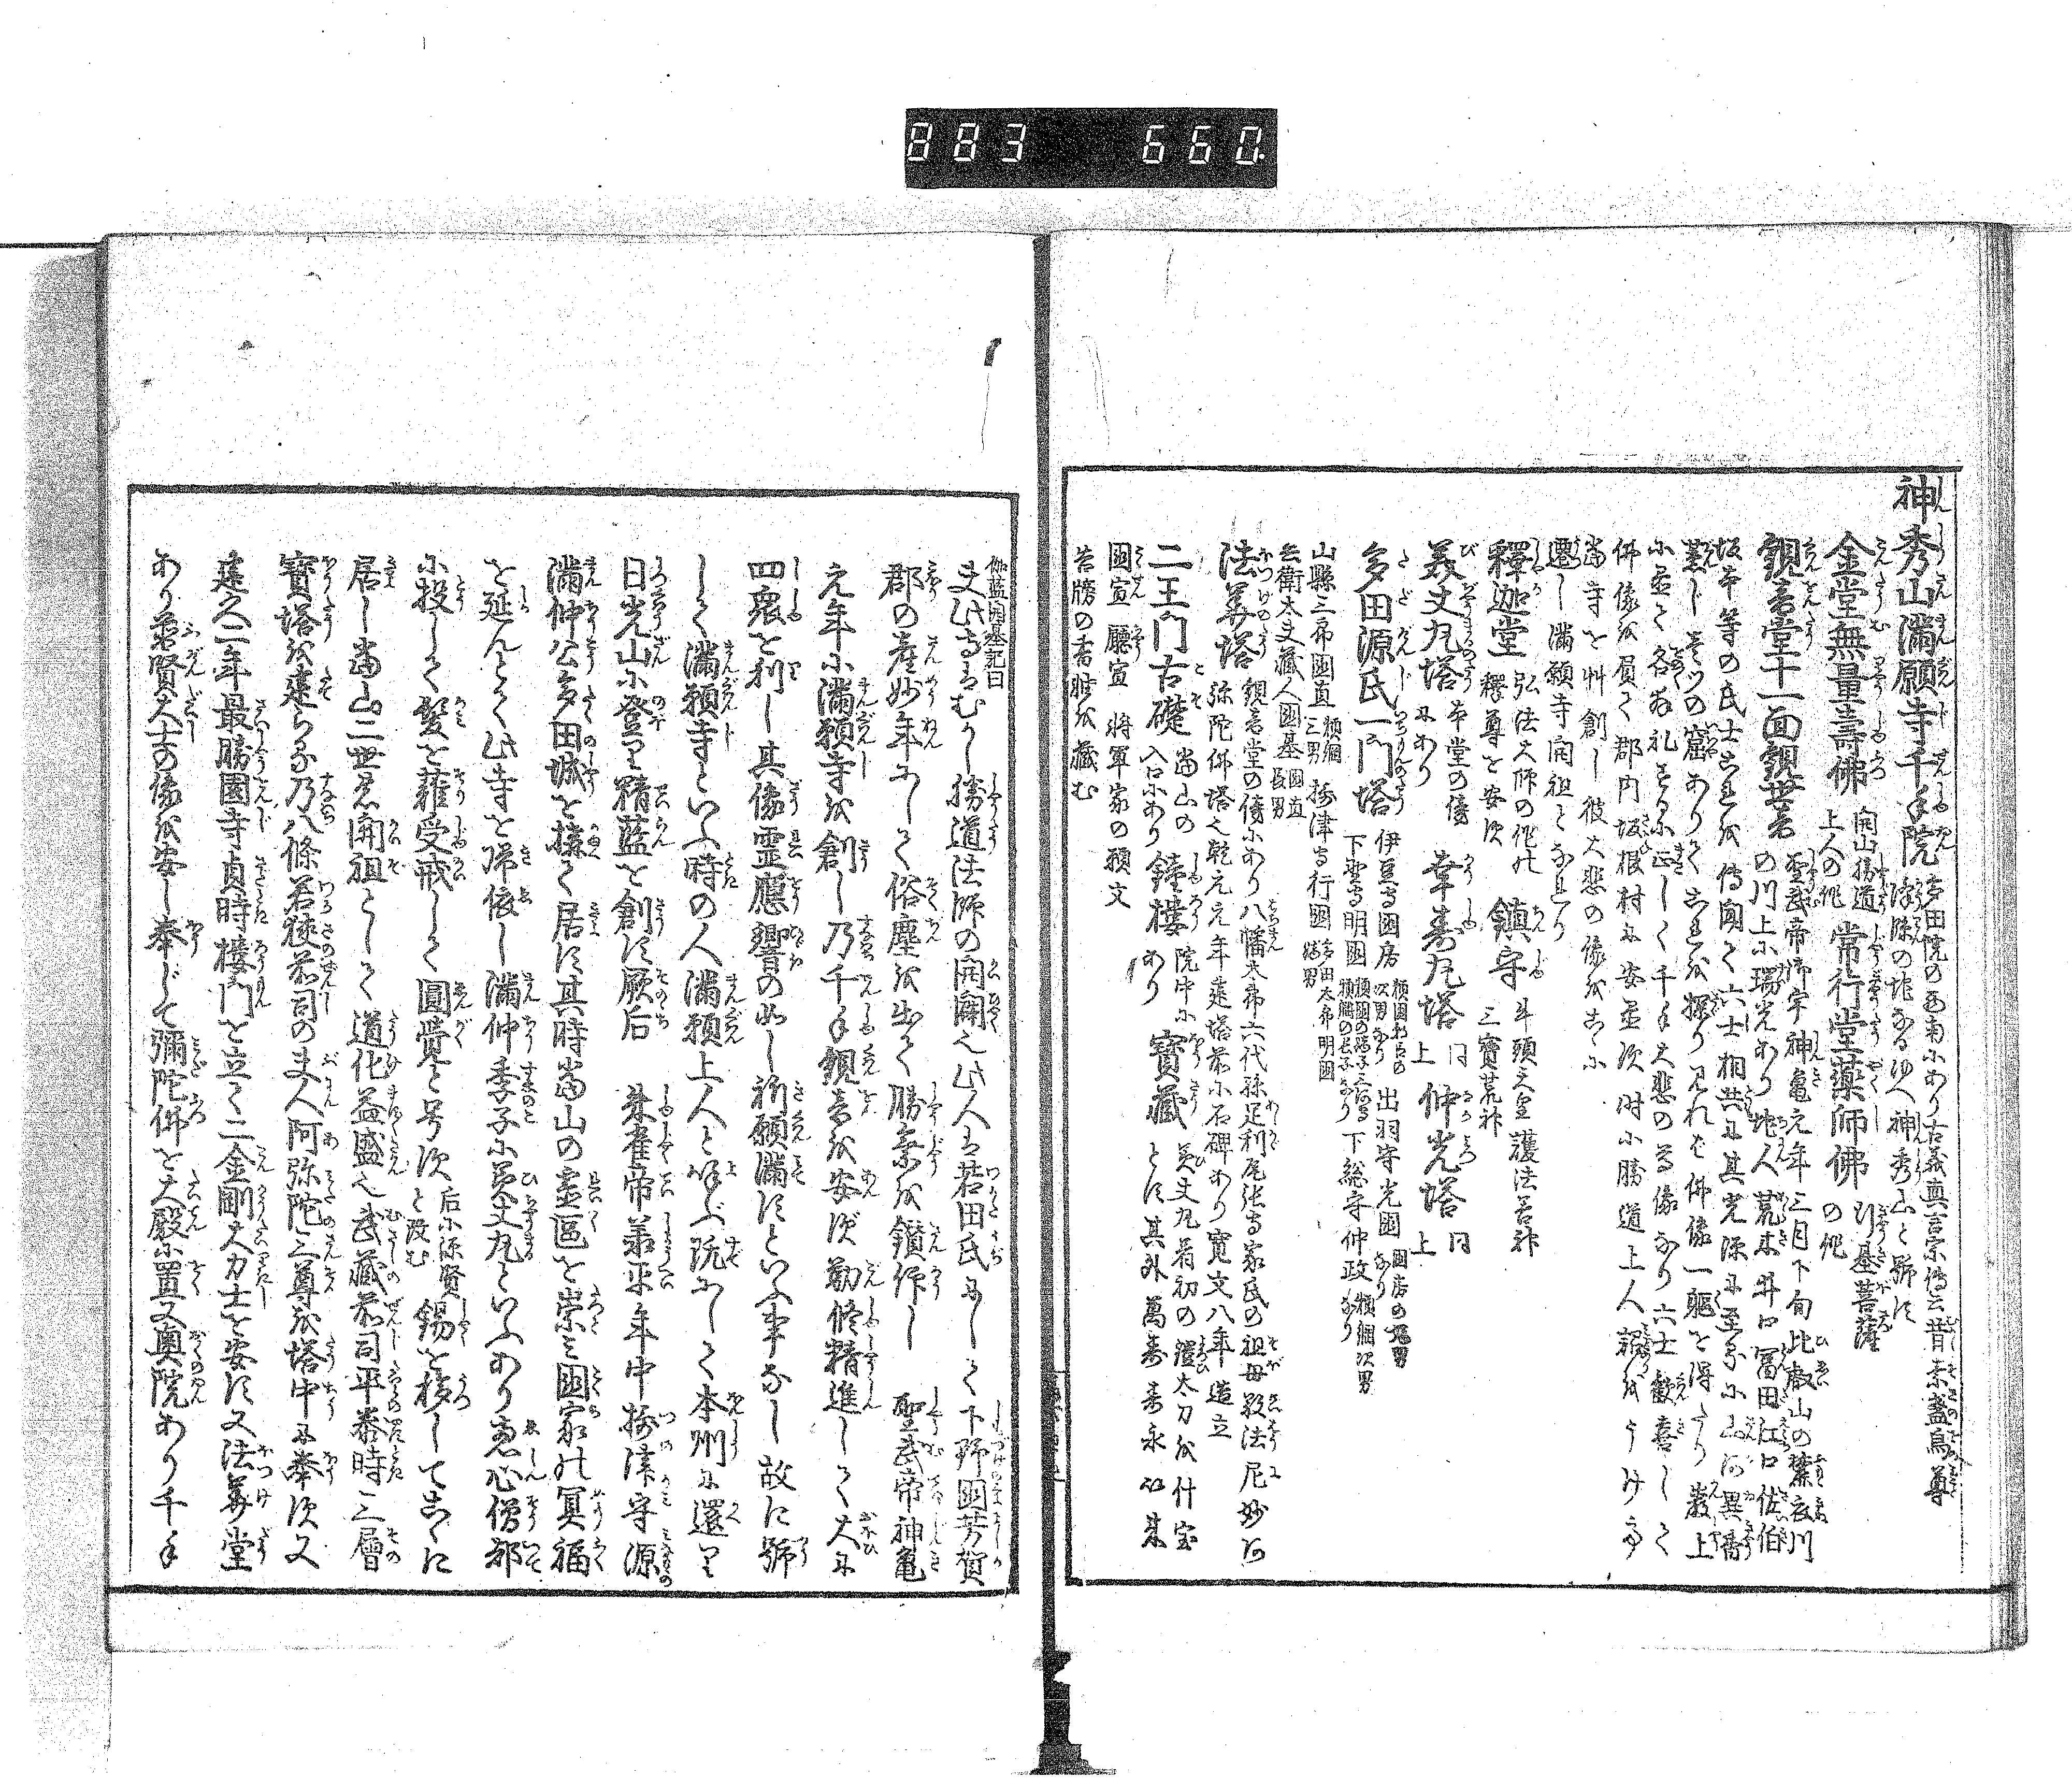 883 660.
神秀山満願寺千手院 多田院の西南にあり古義真言宗伝云昔素盞烏尊
降臨の地なるゆへ神秀山と号す
金堂無量寿仏 開山勝道上人の作 常行堂薬師仏 行基菩薩の作
観音堂十一面観世音 聖武帝御宇神亀元年三月下旬比叡山の麓衣川
の川上に瑞光あり地人荒木井口冨田江口佐伯
坂本等の氏士これを伝聞て六士相共に其光源に至るに山河異香
薫じ一ツの窟ありてこれを探り見れば仏像一躯を得たり巌上
に置て各拝礼するに正しく千手大悲の尊像なり六士歓喜して
仏像を負て郡内坂根村に安置す時に勝道上人詔をうけ
当寺を艸創し彼大悲の像をこゝに
遷し満願寺開祖となれり
釈迦堂 弘法大師の作れ釈尊を安ず 鎮守 牛頭天皇護法善神三宝荒神
美丈丸塔 本堂の傍にあり 幸寿丸塔 同上 仲光塔 同上
多田源氏一門塔 伊豆守国房 頼国 次男なり 出羽守光国 国房の
下野守明国 下総守仲政 頼綱次男なり
山県三郎国直 頼綱三男 摂津守行国 多田太郎明国
兵衛大夫蔵人国基 国直長男
法華塔 観音堂の傍にあり八幡太郎六代孫足利尾張守家氏の祖母 法尼妙阿
弥陀仏塔之乾元元年建塔前に石碑あり寛文八年造立
二王門古礎 当山の入口にあり 鐘楼 院中にあり 宝蔵 美丈丸着初の鎧太刀を什宝
とす其外万寿寿永以来
国宣 庁宣 将軍家の願文
苔牓の書時を蔵む
伽藍開基記曰
夫此寺はむかし勝道法師の開闢之此人は若田氏にして下野国芳賀
郡の産妙年にして俗塵を出て勝業を鑚仰し 聖武帝神亀
元年に満願寺を創し乃千手観音を安ず勤修精進して大に
四衆を利し其像霊応響の如し祈願満ずといふ事なし故に号
して満願寺といふ時の人満願上人と呼ぶ既にして本州に還り
日光山に登り精藍を創す厥后 朱雀帝承平年中摂津守源
満仲公多田城を構て居す其時当山の霊区を崇み国家の冥福
を延んとて此寺を帰依し満仲季子に美丈丸といふあり恵心僧都
に投して髪を薙受戒して円覚と号す 后に源賢と改む 錫を移してこゝに
居し当山二世の開祖として道化益盛之武蔵前司平泰時三層
宝塔を建らる乃八條若狭前司の夫人阿弥陀三尊を塔中に奉ず又
建久二年最勝園寺貞時楼門を立て二金剛大力士を安ず又法華堂
あり普賢大士の像を安し奉じて弥陀仏を大殿に置又奥院あり千手